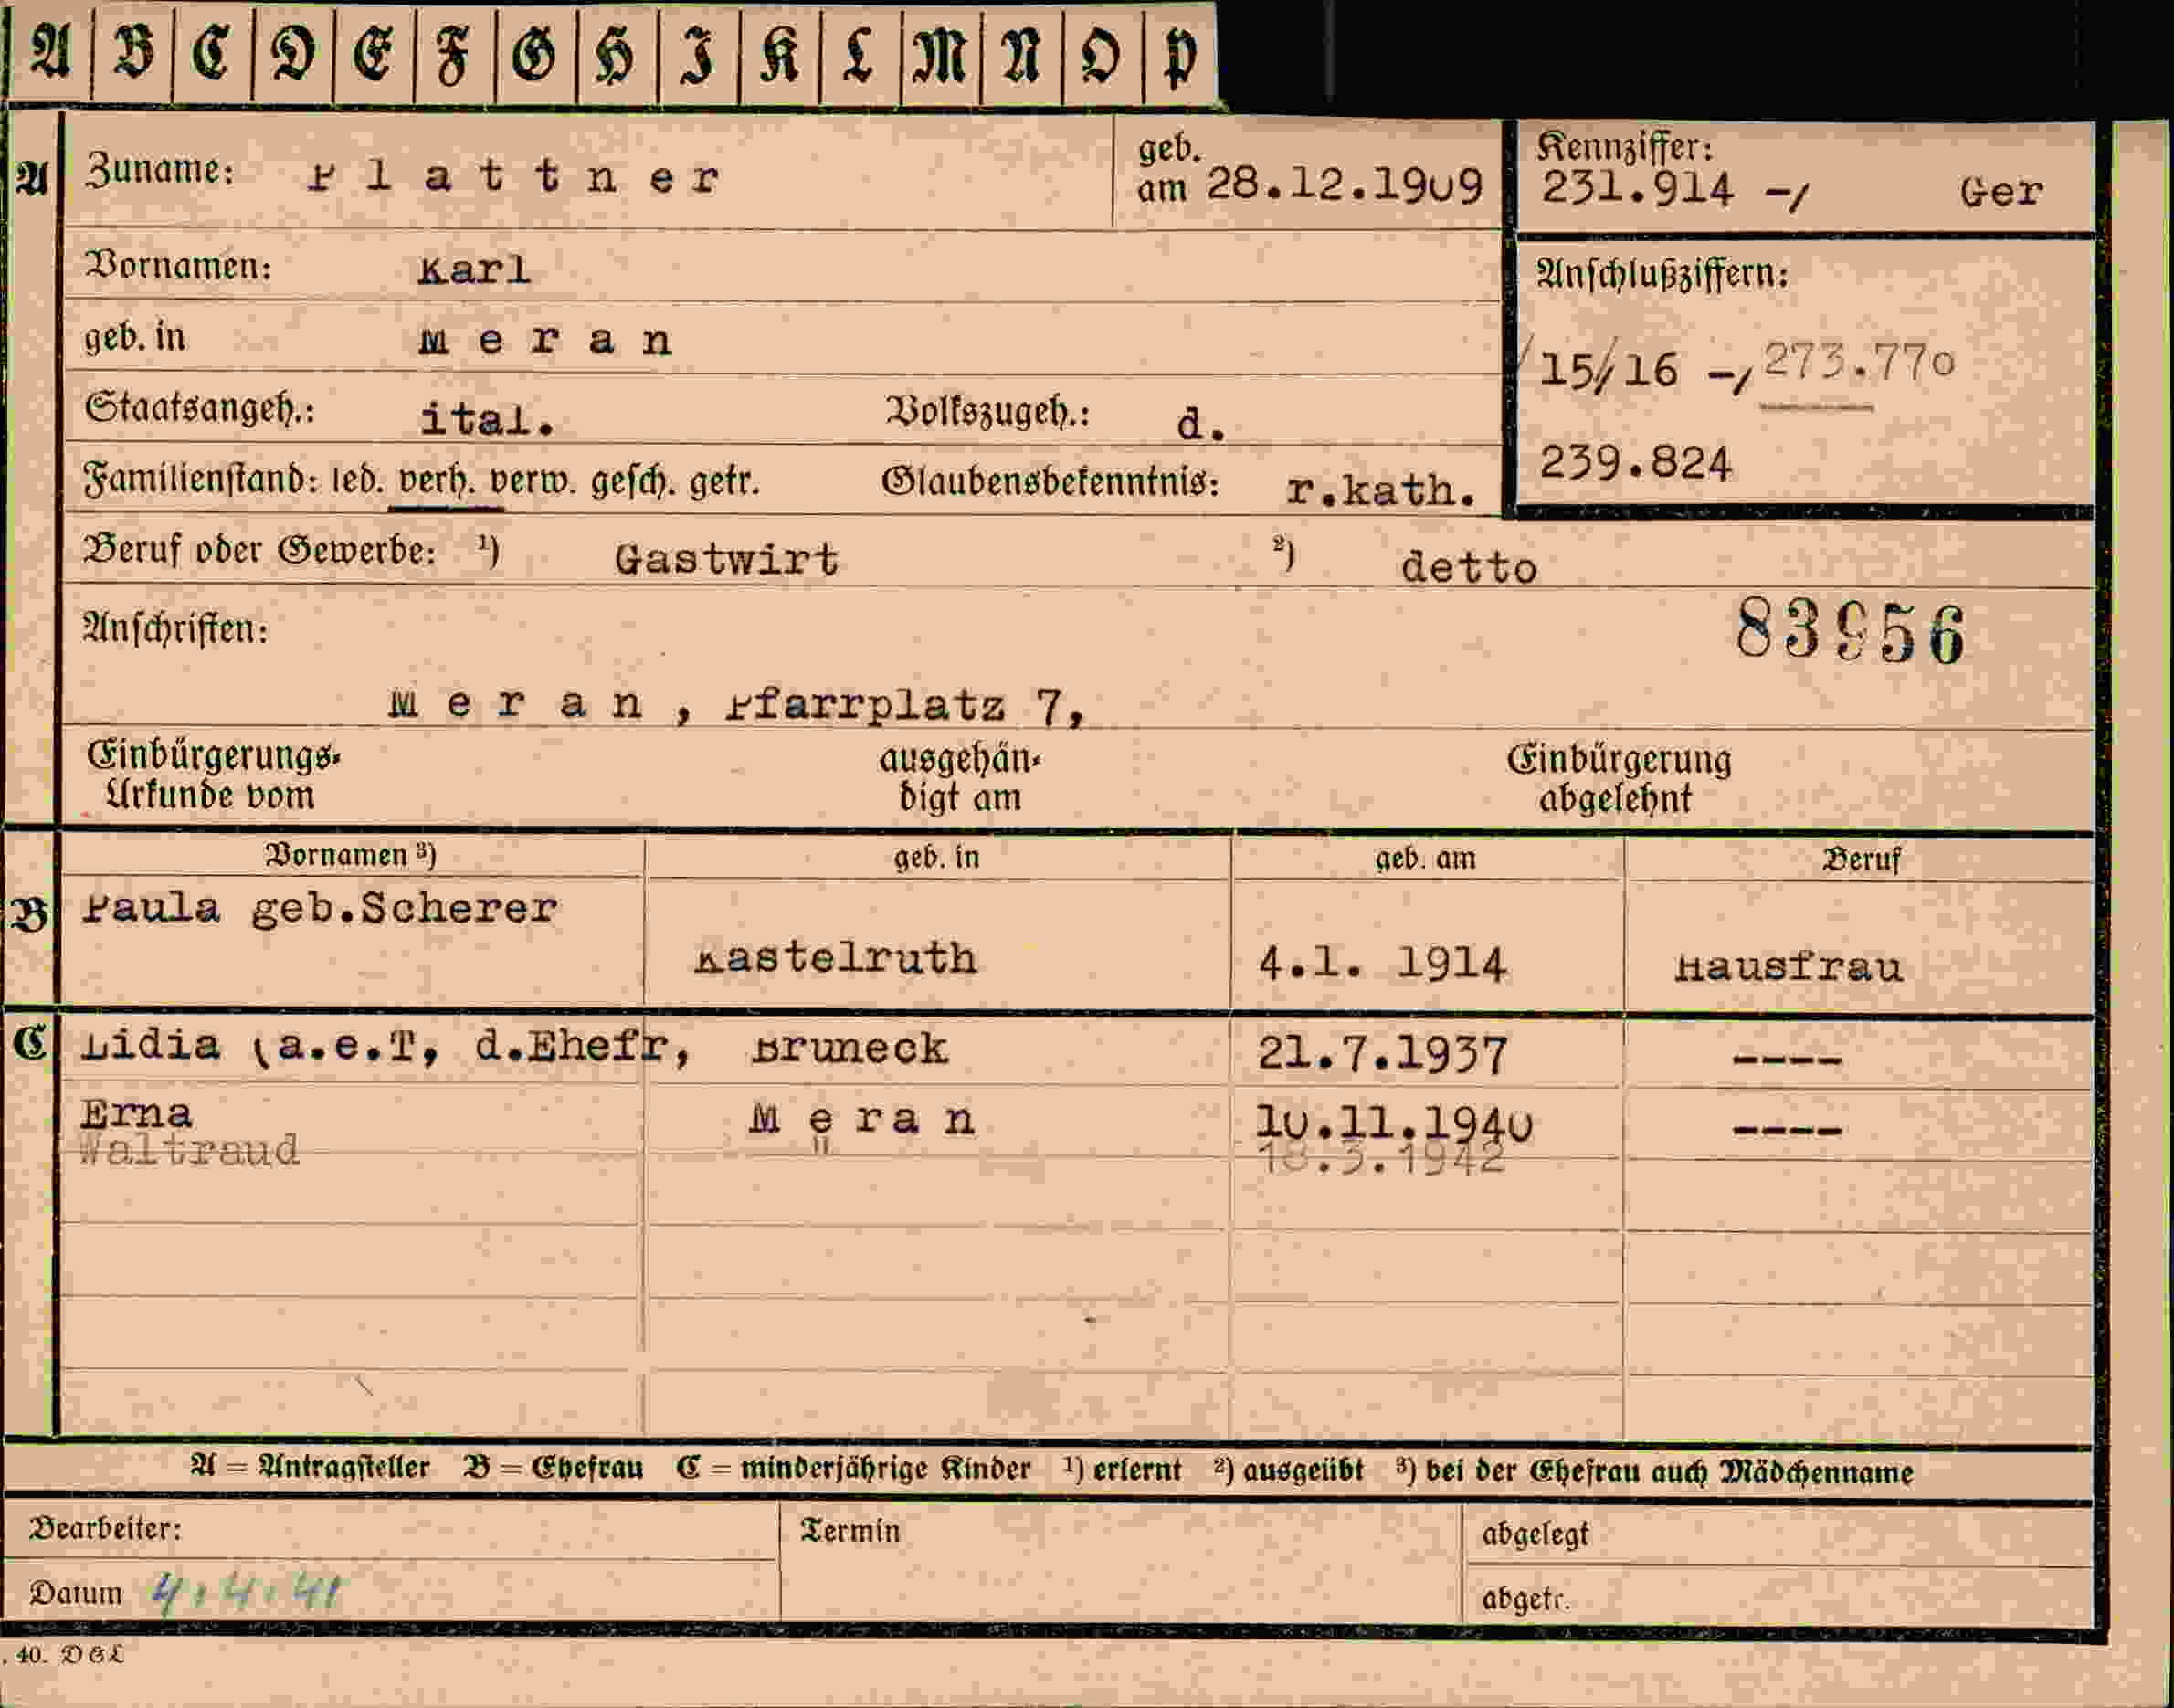 A B C D E F G H I K L M N O P
A Zuname: Plattner geb. am 28.12.1909 Kennziffer: 231.914 -/ Ger
Vornamen: Karl
geb. in Meran
Anschlußziffern:
/15/16 -/ 273.770
239.824
Staatsangeh.: ital. Volkszugeh.: d.
Familienstand: led. verh. verw. gesch. getr. Glaubensbekenntnis: r.kath.
Beruf oder Gewerbe: ¹) Gastwirt ²) detto
Anschriften:
83956
Meran, Pfarrplatz 7,
Einbürgerungs- Urkunde vom ausgehän- digt am Einbürgerung abgelehnt
Vornamen ³) geb. in geb. am Beruf
B Paula geb.Scherer
Kastelruth 4.1. 1914 Hausfrau
C Lidia (a.e.T, d.Ehefr, Bruneck 21.7.1937 ----
Erna Meran 10.11.1940 ----
Waltraud " .3.1942
A = Antragsteller B = Ehefrau C = minderjährige Kinder ¹) erlernt ²) ausgeübt ³) bei der Ehefrau auch Mädchenname
Bearbeiter: Termin abgelegt
Datum 4.4.41 abgetr.
. 40. D&L